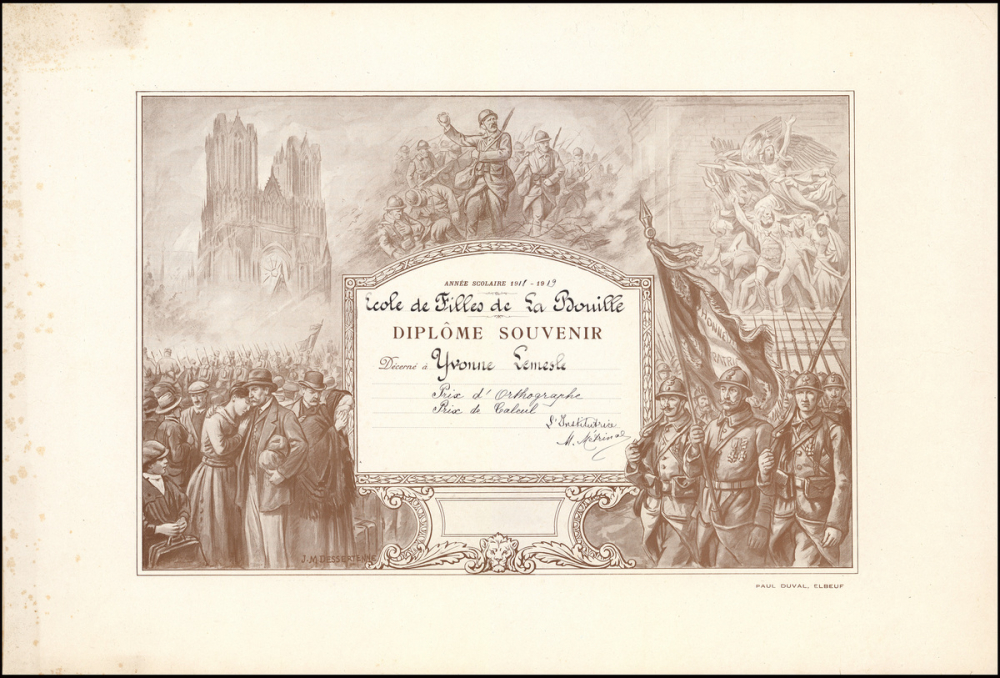 ANNÉE SCOLAIRE 1918 - 1919
Ecole de Filles de La Bouille
DIPLÔME SOUVENIR
Décerné à Yvonne Lemesle
Prix d'Orthographe
Prix de Calcul
L'Institutrice
M.
HONNEUR
PATRIE
J. M. DESSERTENNE
PAUL DUVAL, ELBEUF